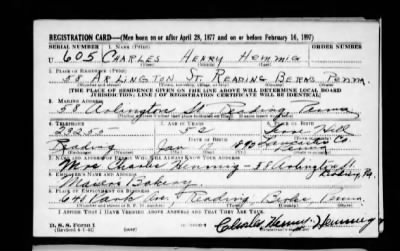 REGISTRATION CARD—(Men born on or after April 28, 1877 and on or before February 16, 1897)
SERIAL NUMBER 1. NAME (Print) ORDER NUMBER
U 605 CHARLES HENRY HEMMIG
(First) (Middle) (Last)
2. PLACE OF RESIDENCE (Print)
58 ARLINGTON ST. READING BERKS PENNA.
(Number and street) (Town, township, village, or city) (County) (State)
[THE PLACE OF RESIDENCE GIVEN ON THE LINE ABOVE WILL DETERMINE LOCAL BOARD
JURISDICTION; LINE 2 OF REGISTRATION CERTIFICATE WILL BE IDENTICAL]
3. MAILING ADDRESS
58 Arlington St Reading, Penna
4. TELEPHONE 5. AGE IN YEARS 6. PLACE OF BIRTH
23255 52 Terre Hill
DATE OF BIRTH
Reading Jan 19 Lancaster Co
7. NAME AND ADDRESS OF PERSON WHO WILL ALWAYS KNOW YOUR ADDRESS
Mrs Charles Hemmig - 58 Arlington St
Reading Pa.
8. EMPLOYER'S NAME AND ADDRESS
Bakery
Park Ave. Reading, Berks, Penna.
I AFFIRM THAT I HAVE VERIFIED ABOVE ANSWERS AND THAT THEY ARE TRUE.
D. S. S. Form 1
Charles Henry Hemmig